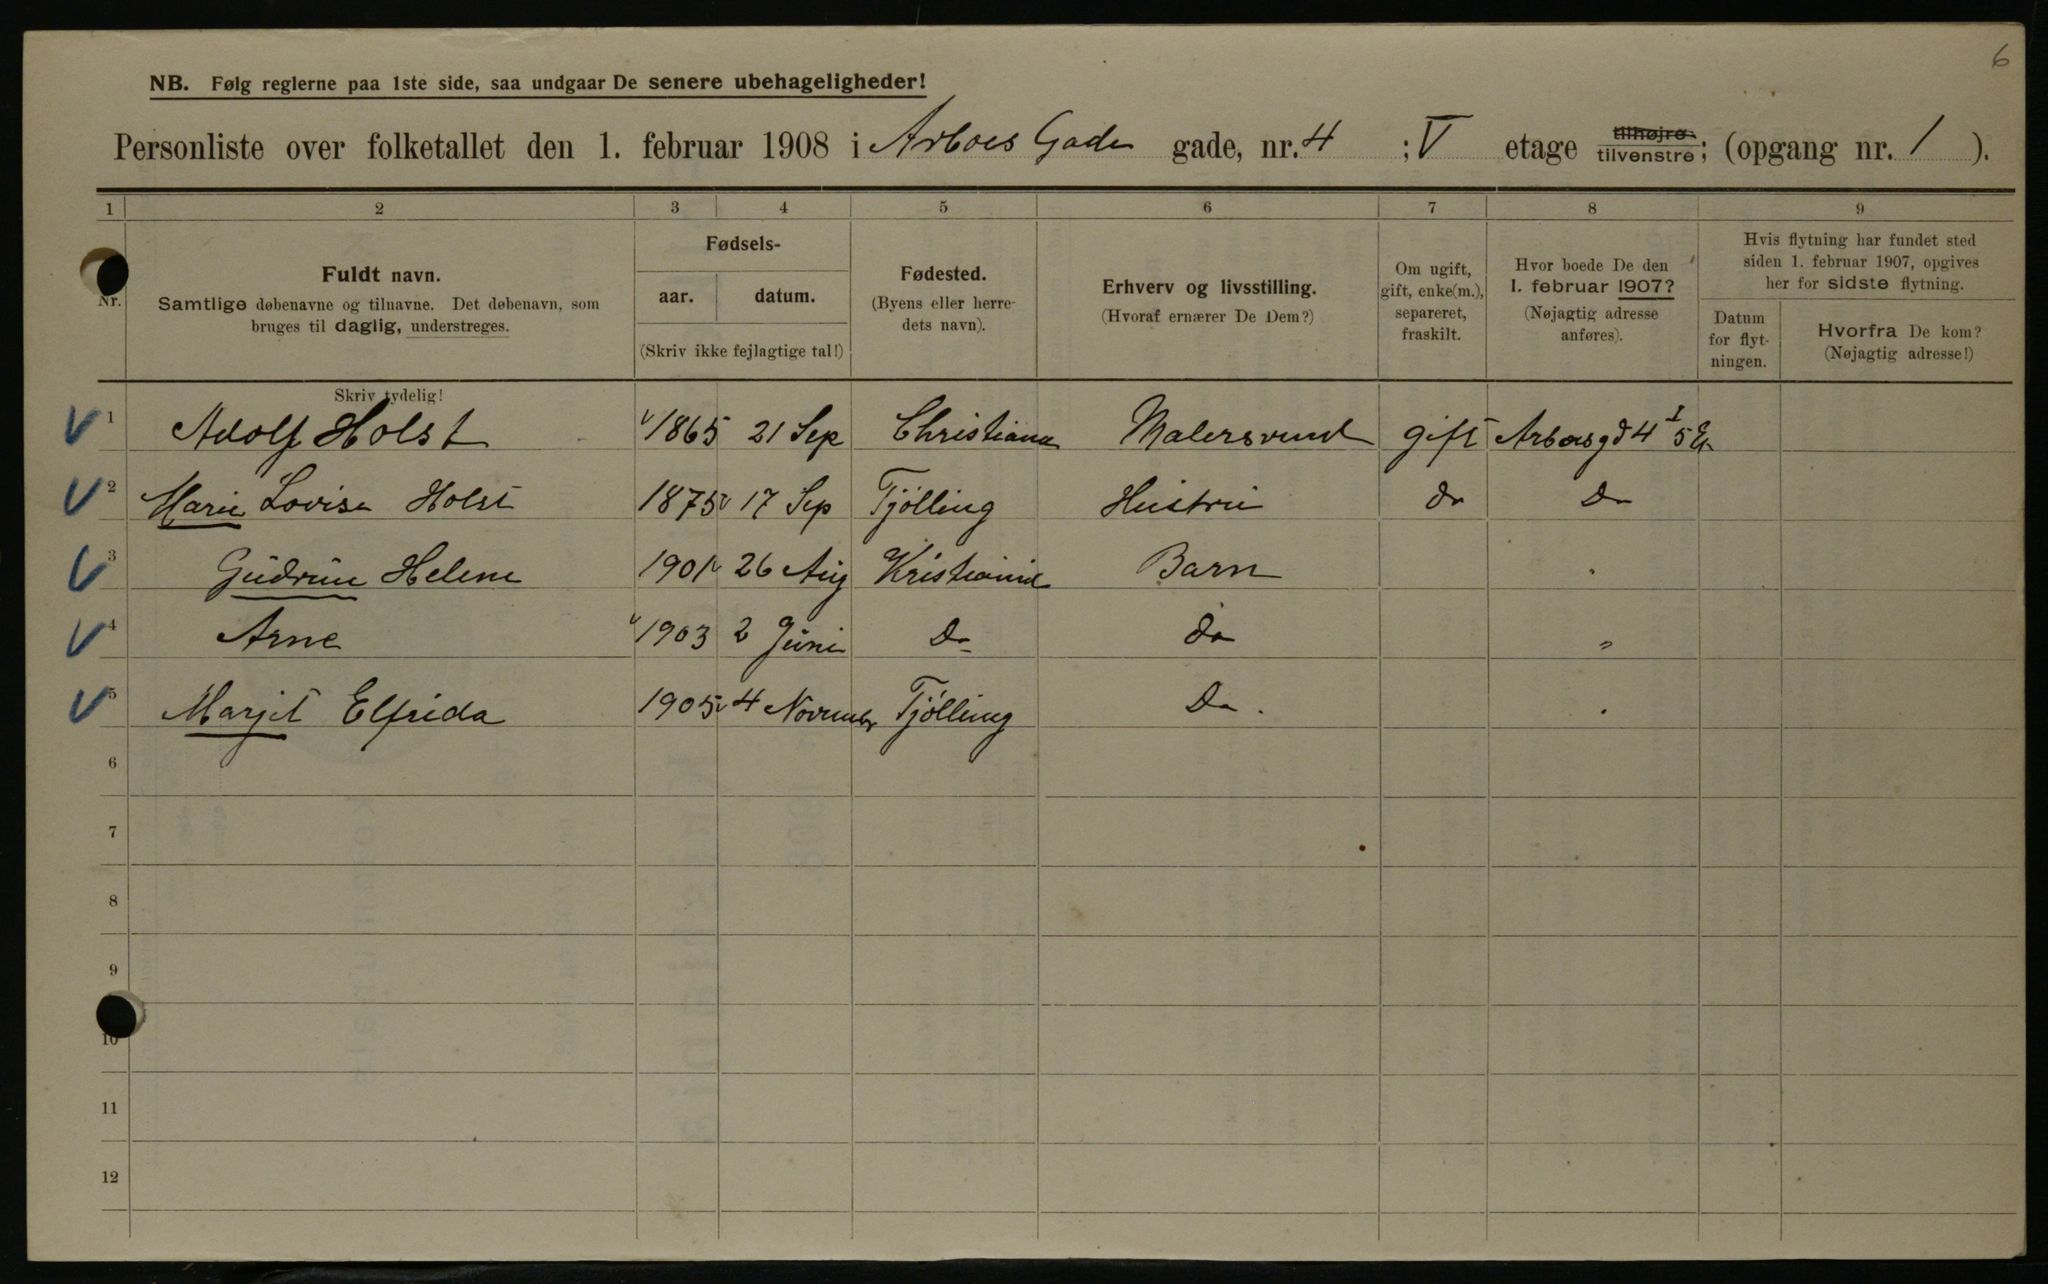 6
NB. Følg reglerne paa 1ste side, saa undgaar De senere ubehageligheder!
Personliste over folketallet den 1. februar 1908 i Arboes Gade gade, nr. 4 ; V etage tilhøjre tilvenstre; (opgang nr. 1 ).
1 2 3 4 5 6 7 8 9
Nr.
Fuldt navn.
Samtlige døbenavne og tilnavne. Det døbenavn, som
bruges til daglig, understreges.
Fødsels-
aar. datum.
(Skriv ikke fejlagtige tal!)
Fødested.
(Byens eller herre-
dets navn).
Erhverv og livsstilling.
(Hvoraf ernærer De Dem?)
Om ugift,
gift, enke(m.),
separeret,
fraskilt.
Hvor boede De den
1. februar 1907?
(Nøjagtig adresse
anføres).
Hvis flytning har fundet sted
siden 1. februar 1907, opgives
her for sidste flytning.
Datum
for flyt-
ningen.
Hvorfra De kom?
(Nøjagtig adresse!)
Skriv tydelig!
1 Adolf Holst 1865 21 Sep Christiania Malersvend gift Arboesgd 4 I 5 Et
2 Marie Lovise Holst 1875 17 Sep Tjölling Hustru do Do
3 Gudrun Helene 1901 26 Aug Kristiania Barn "
4 Arne 1903 2 Juni Do do "
5 Marjit Elfrida 1905 4 November Tjölling Do. "
6
7
8
9
10
11
12